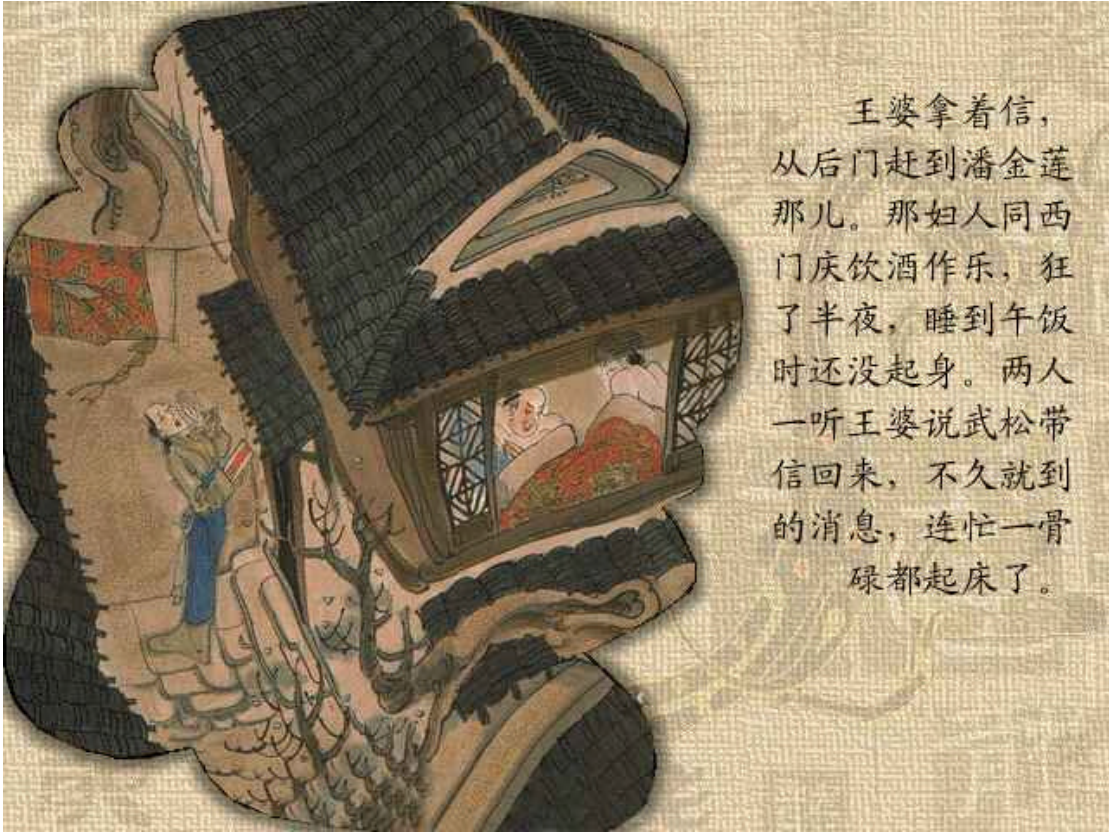 王婆拿着信，
从后门赶到潘金莲
那儿。那妇人同西
门庆饮酒作乐，狂
了半夜，睡到午饭
时还没起身。两人
一听王婆说武松带
信回来，不久就到
的消息，连忙一骨
碌都起床了。